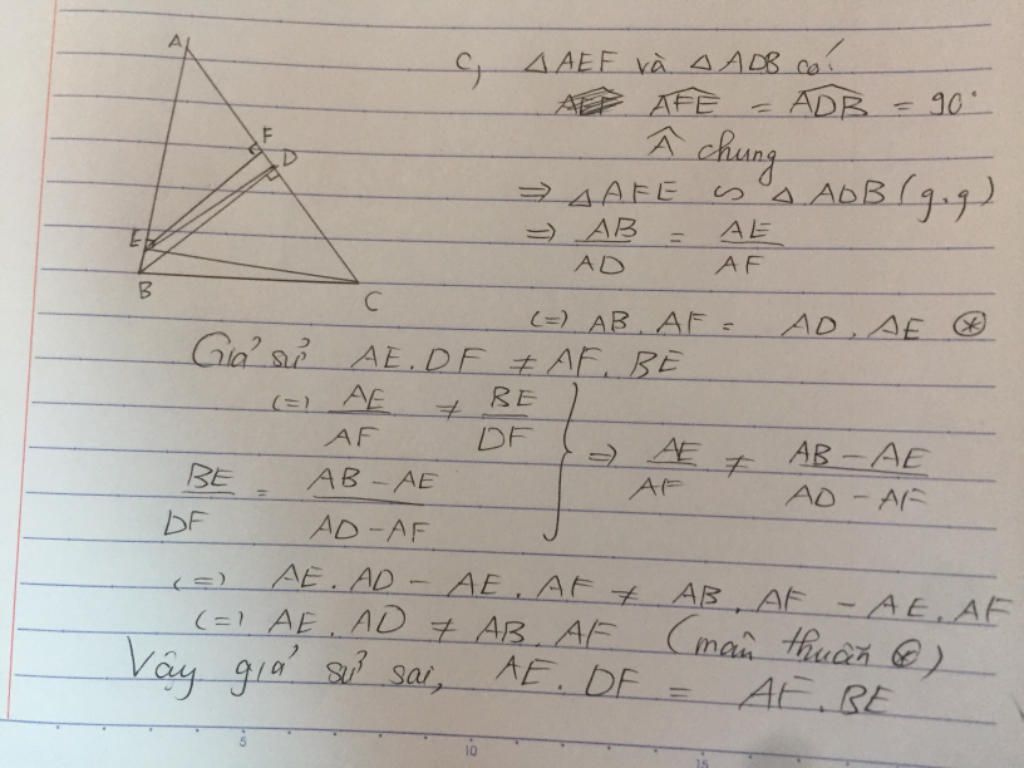 A
F
D
E
B
C
c, △AEF và △ADB có:
AFE = ADB = 90°
Â chung
⇒ △AFE ∽ △ADB (g.g)
⇒ AB/AD = AE/AF
(=) AB.AF = AD.AE (*)
Giả sử AE.DF ≠ AF.BE
(=) AE/AF ≠ BE/DF
BE/DF = (AB-AE)/(AD-AF)
⇒ AE/AF ≠ (AB-AE)/(AD-AF)
(=) AE.AD - AE.AF ≠ AB.AF - AE.AF
(=) AE.AD ≠ AB.AF (mân thuẫn (*))
Vậy giả sử sai, AE.DF = AF.BE
5
10
15